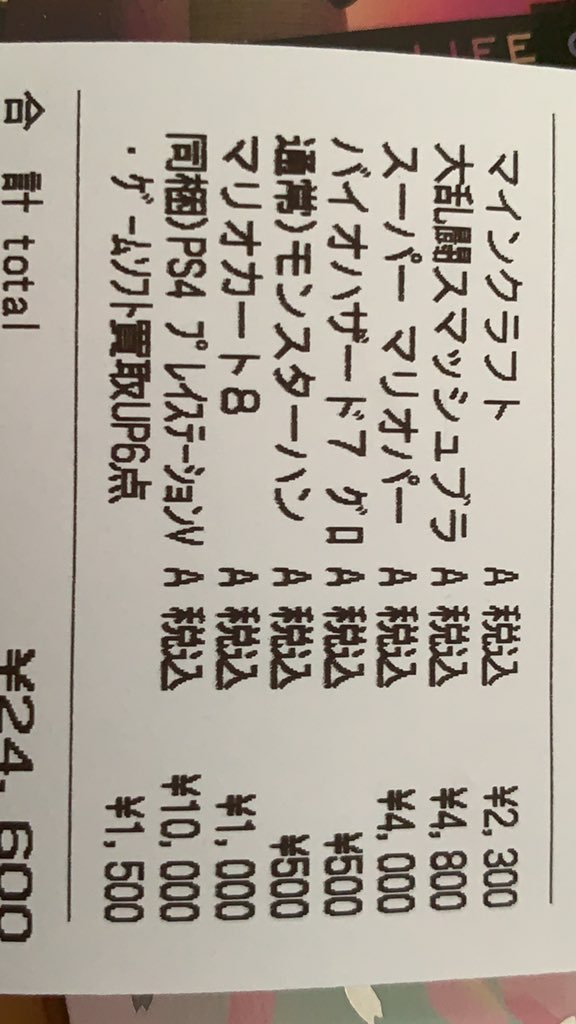 LIFE
マインクラフト A 税込 ¥2,300
大乱闘スマッシュブラ A 税込 ¥4,800
スーパー マリオパー A 税込 ¥4,000
バイオハザード7 グロ A 税込 ¥500
通常)モンスターハン A 税込 ¥500
マリオカート8 A 税込 ¥1,000
同梱)PS4 プレイステーションV A 税込 ¥10,000
・ゲームソフト買取UP6点 ¥1,500
合 計 total ¥24,600